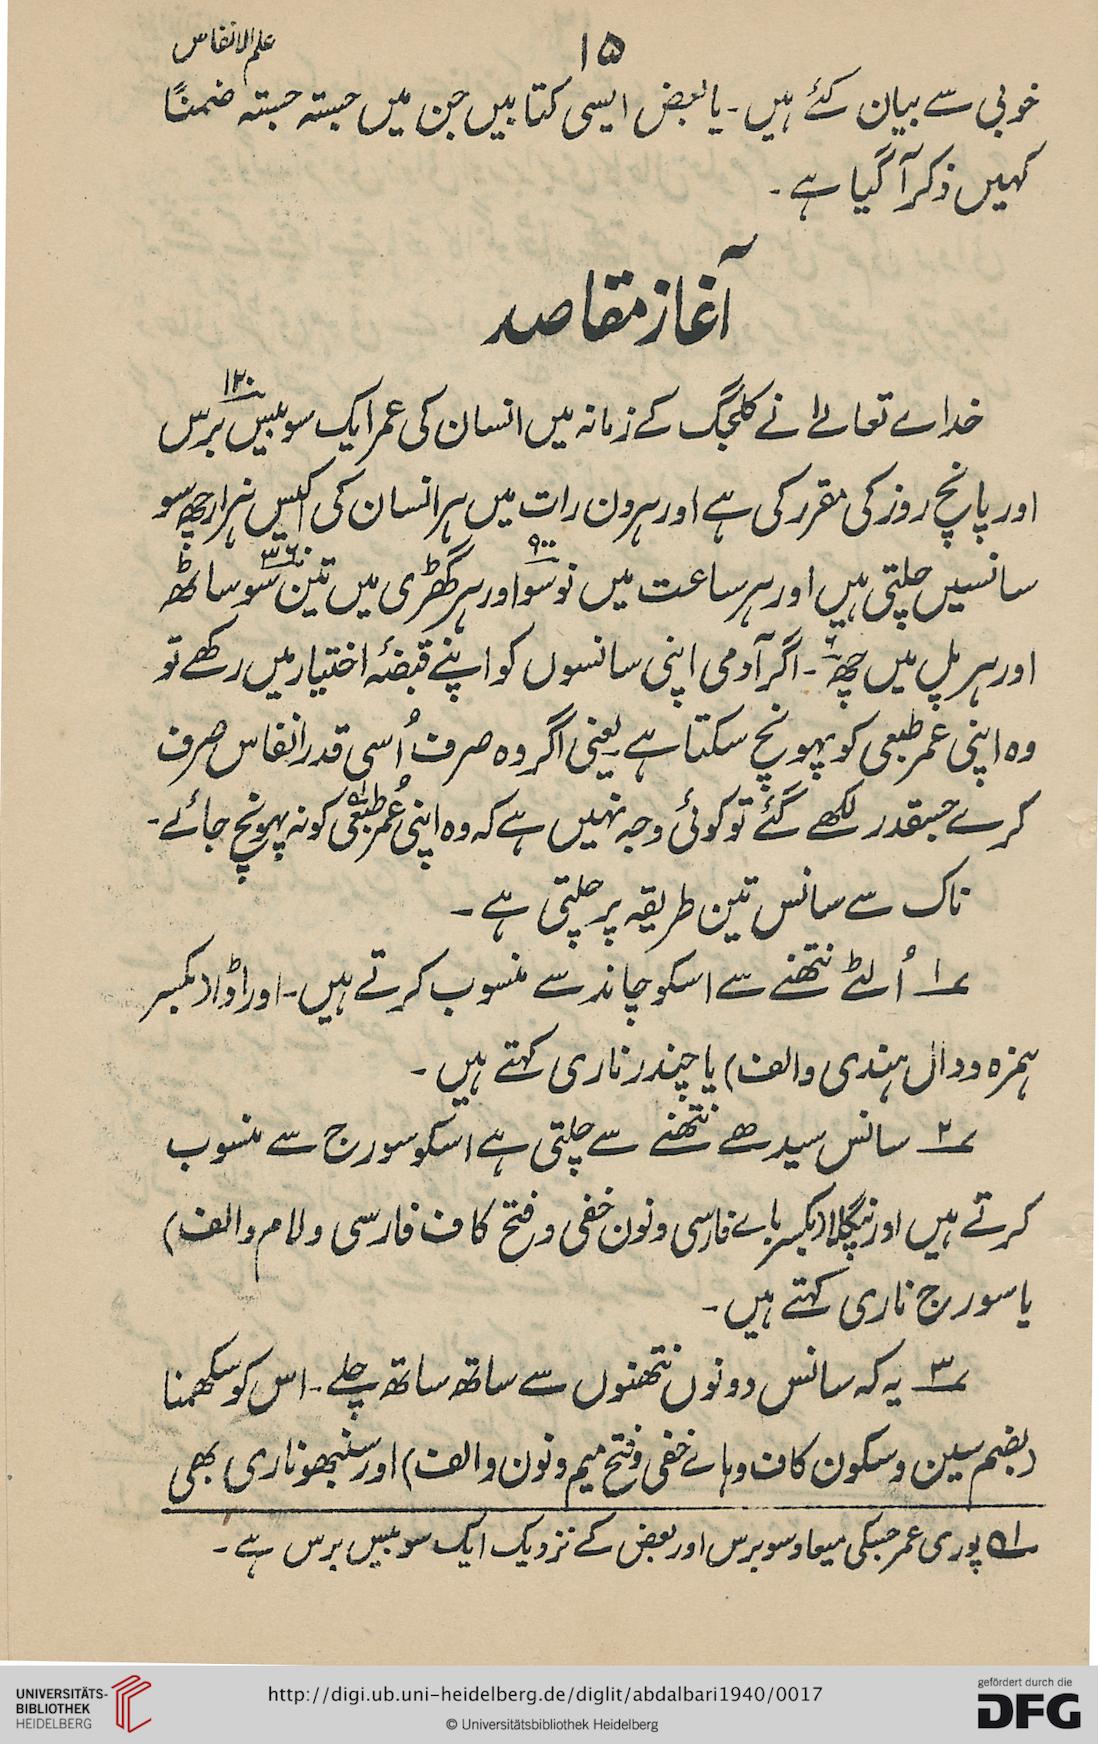 ۱۵
علم الانفاس
خوبی سے بیان کئے ہیں۔ یا بعض ایسی کتابیں جن میں جستہ جستہ ضمناً
کہیں ذکر آگیا ہے۔
آغاز مقاصد
خداے تعالےٰ نے کلجگ کے زمانہ میں انسان کی عمر ایک سو بیس ۱۲۰ برس
اور پانچ روز کی مقرر کی ہے اور ہر دن رات میں ہر انسان کی اکیس ہزار چھ سو
سانسیں چلتی ہیں اور ہر ساعت میں نو سو ۹۰۰ اور ہر گھڑی میں تین سو ساٹھ ۳۶۰
اور ہر پل میں چھ ۶۔ اگر آدمی اپنی سانسوں کو اپنے قبضۂ اختیار میں رکھے تو
وہ اپنی عمر طبعی کو پہونچ سکتا ہے یعنی اگر وہ صرف اُسی قدر انفاس صرف
کرے جسقدر لکھے گئے تو کوئی وجہ نہیں ہے کہ وہ اپنی عُمر طبعی ۱؎ کو نہ پہونچ جائے۔
ناک سے سانس تین طریقہ پر چلتی ہے۔
۱؎ اُلٹے نتھنے سے اسکو چاند سے منسوب کرتے ہیں۔ اور اڈا (بکسر
ہمزہ و دال ہندی و الف) یا چندر ناری کہتے ہیں۔
۲؎ سانس سیدھے نتھنے سے چلتی ہے اسکو سورج سے منسوب
کرتے ہیں اور پنگلا (بکسر باے فارسی و نون خفی و فتح کاف فارسی و لام و الف)
یا سورج ناری کہتے ہیں۔
۳؎ یہ کہ سانس دونوں نتھنوں سے ساتھ ساتھ چلے۔ اس کو سکھمنا
(بضم سین و سکون کاف و ہاے خفی و فتح میم و نون و الف) اور سنبھو ناری بھی
۱؎ پوری عمر جسکی میعاد سو برس اور بعض کے نزدیک ایک سو بیس برس ہے۔
UNIVERSITÄTS-
BIBLIOTHEK
HEIDELBERG
http://digi.ub.uni-heidelberg.de/diglit/abdalbari1940/0017
© Universitätsbibliothek Heidelberg
gefördert durch die
DFG